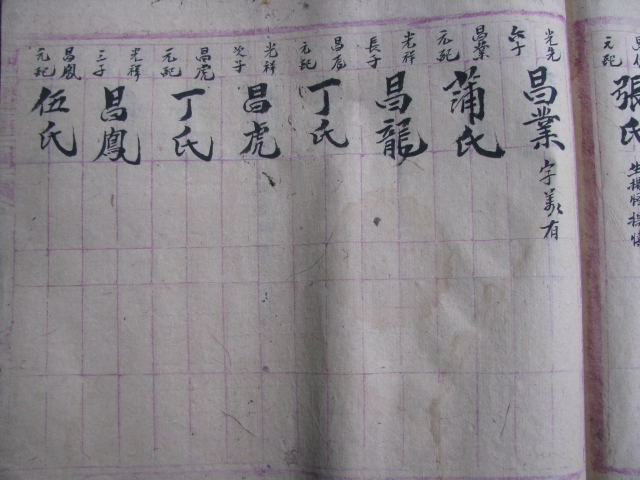 元配
張氏
光先
六子
昌業 字美有
昌業
元配
蒲氏
光祥
長子
昌龍
昌龙
元配
丁氏
光祥
次子
昌虎
昌虎
元配
丁氏
光祥
三子
昌鳳
昌鳳
元配
伍氏